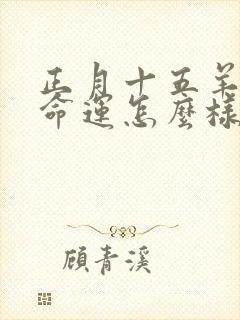 正月十五羊
命運怎麼樣
顧青溪